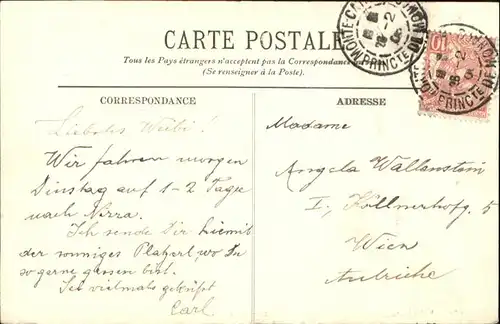 CARTE POSTALE
Tous les Pays étrangers n'acceptent pas la Correspondance
(Se renseigner à la Poste).
CORRESPONDANCE
ADRESSE
Liebstes Weibi!
Wir fahren morgen
Dinstag auf 1-2 Tage
nach Nizza.
Ich sende Dir hiemit
der sonniges Platzerl, wo Du
so gerne gesessen bist.
Sei vielmals geküsst
Carl
Madame
Angela Wallenstein
I., Köllnerhofg. 5
Wien
Autriche
MONTE-CARLO
PRINCTE DE
10